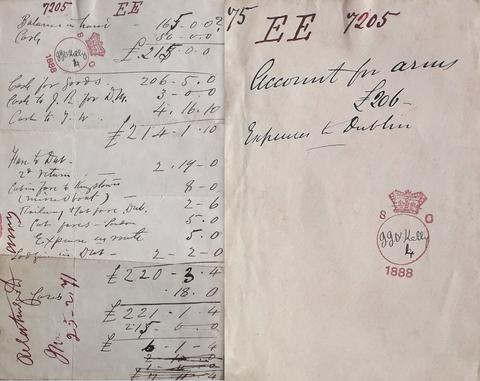 7205 EE
Balance in hand — 165.0.0?
Cash 50-0-0
£215.0.0
S G
1888
Cash for goods. 206-5.0
Cash to J. R. for Dub. 3-0-0
Cash to J. W. 4.16.10
£214-1.10
Fare to Dub -
2nd return - 2.19-0
Cabin fare to Kingstown 8-0
(missed boat)
Railway fare Dub. 2-6
2 Cab fares - 5.0
Expense en route 5.0
Lodgings in Dub - 2-2-0
£220-3.4
fares 18.0
£221-1-4
215-0-0
£6-1-4
25-2-71
75 EE 7205
Account for arms
£206-
Expenses to Dublin
S G
1888